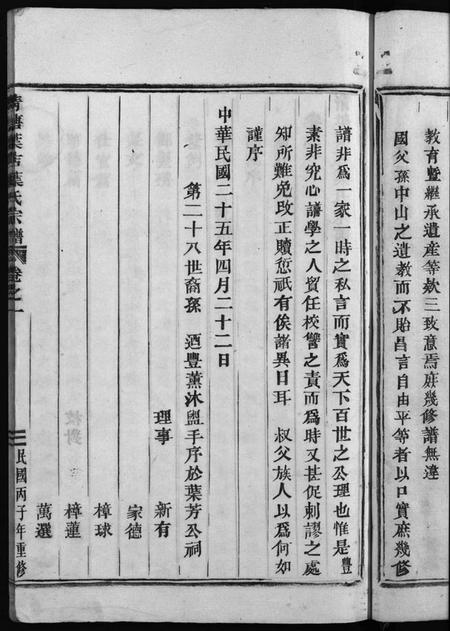 教育暨繼承遺產等欵三致意焉庶幾修譜無違
國父孫中山之遺教而不貽昌言自由平等者以口實庶幾修
譜非爲一家一時之私言而實爲天下百世之公理也惟是豐
素非究心譜學之人貿任校讐之責而爲時又甚促刺謬之處
知所難免改正贖愆祇有俟諸異日耳　叔父族人以爲何如
謹序
中華民國二十五年四月二十二日
第二十八世裔孫　迺豐薰沐盥手序於葉芳公祠
理事　新有
家德
樟球
樟蓮
萬選
葉氏宗譜　卷之一
民國丙子年重修